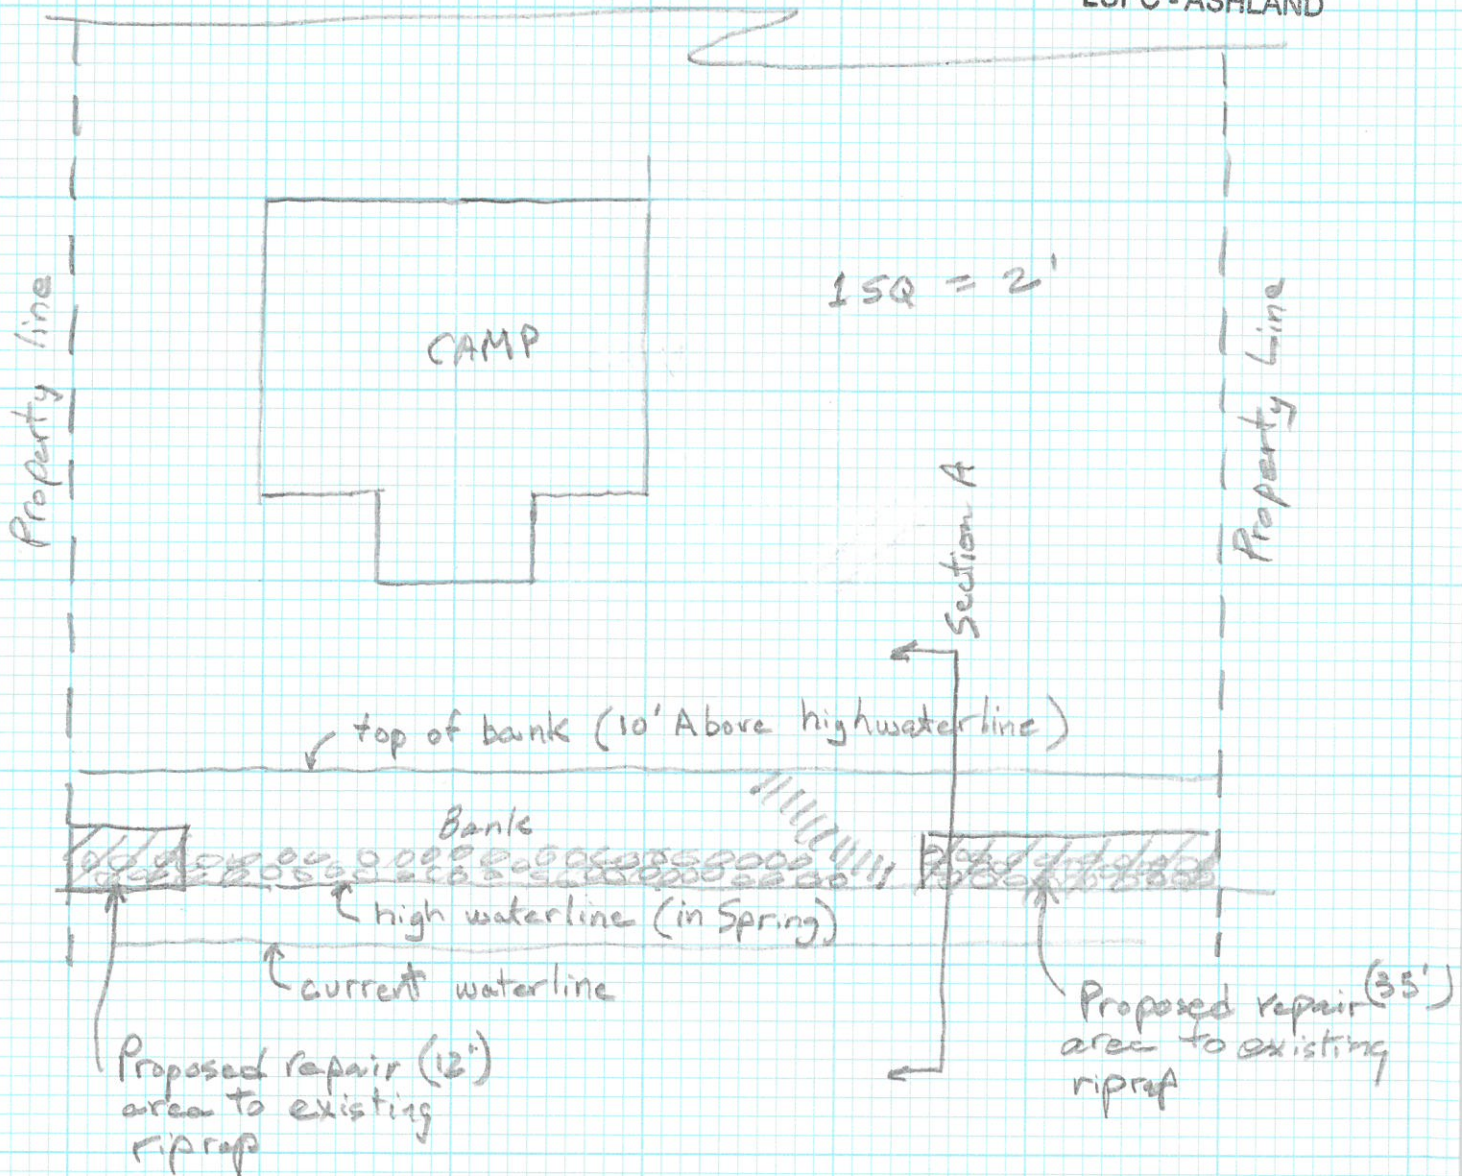 LUPC - ASHLAND
Property line
CAMP
1 SQ = 2'
Property Line
Section A
top of bank (10' Above highwaterline)
Bank
high waterline (in Spring)
current waterline
Proposed repair (35')
area to existing
riprap
Proposed repair (12')
area to existing
riprap